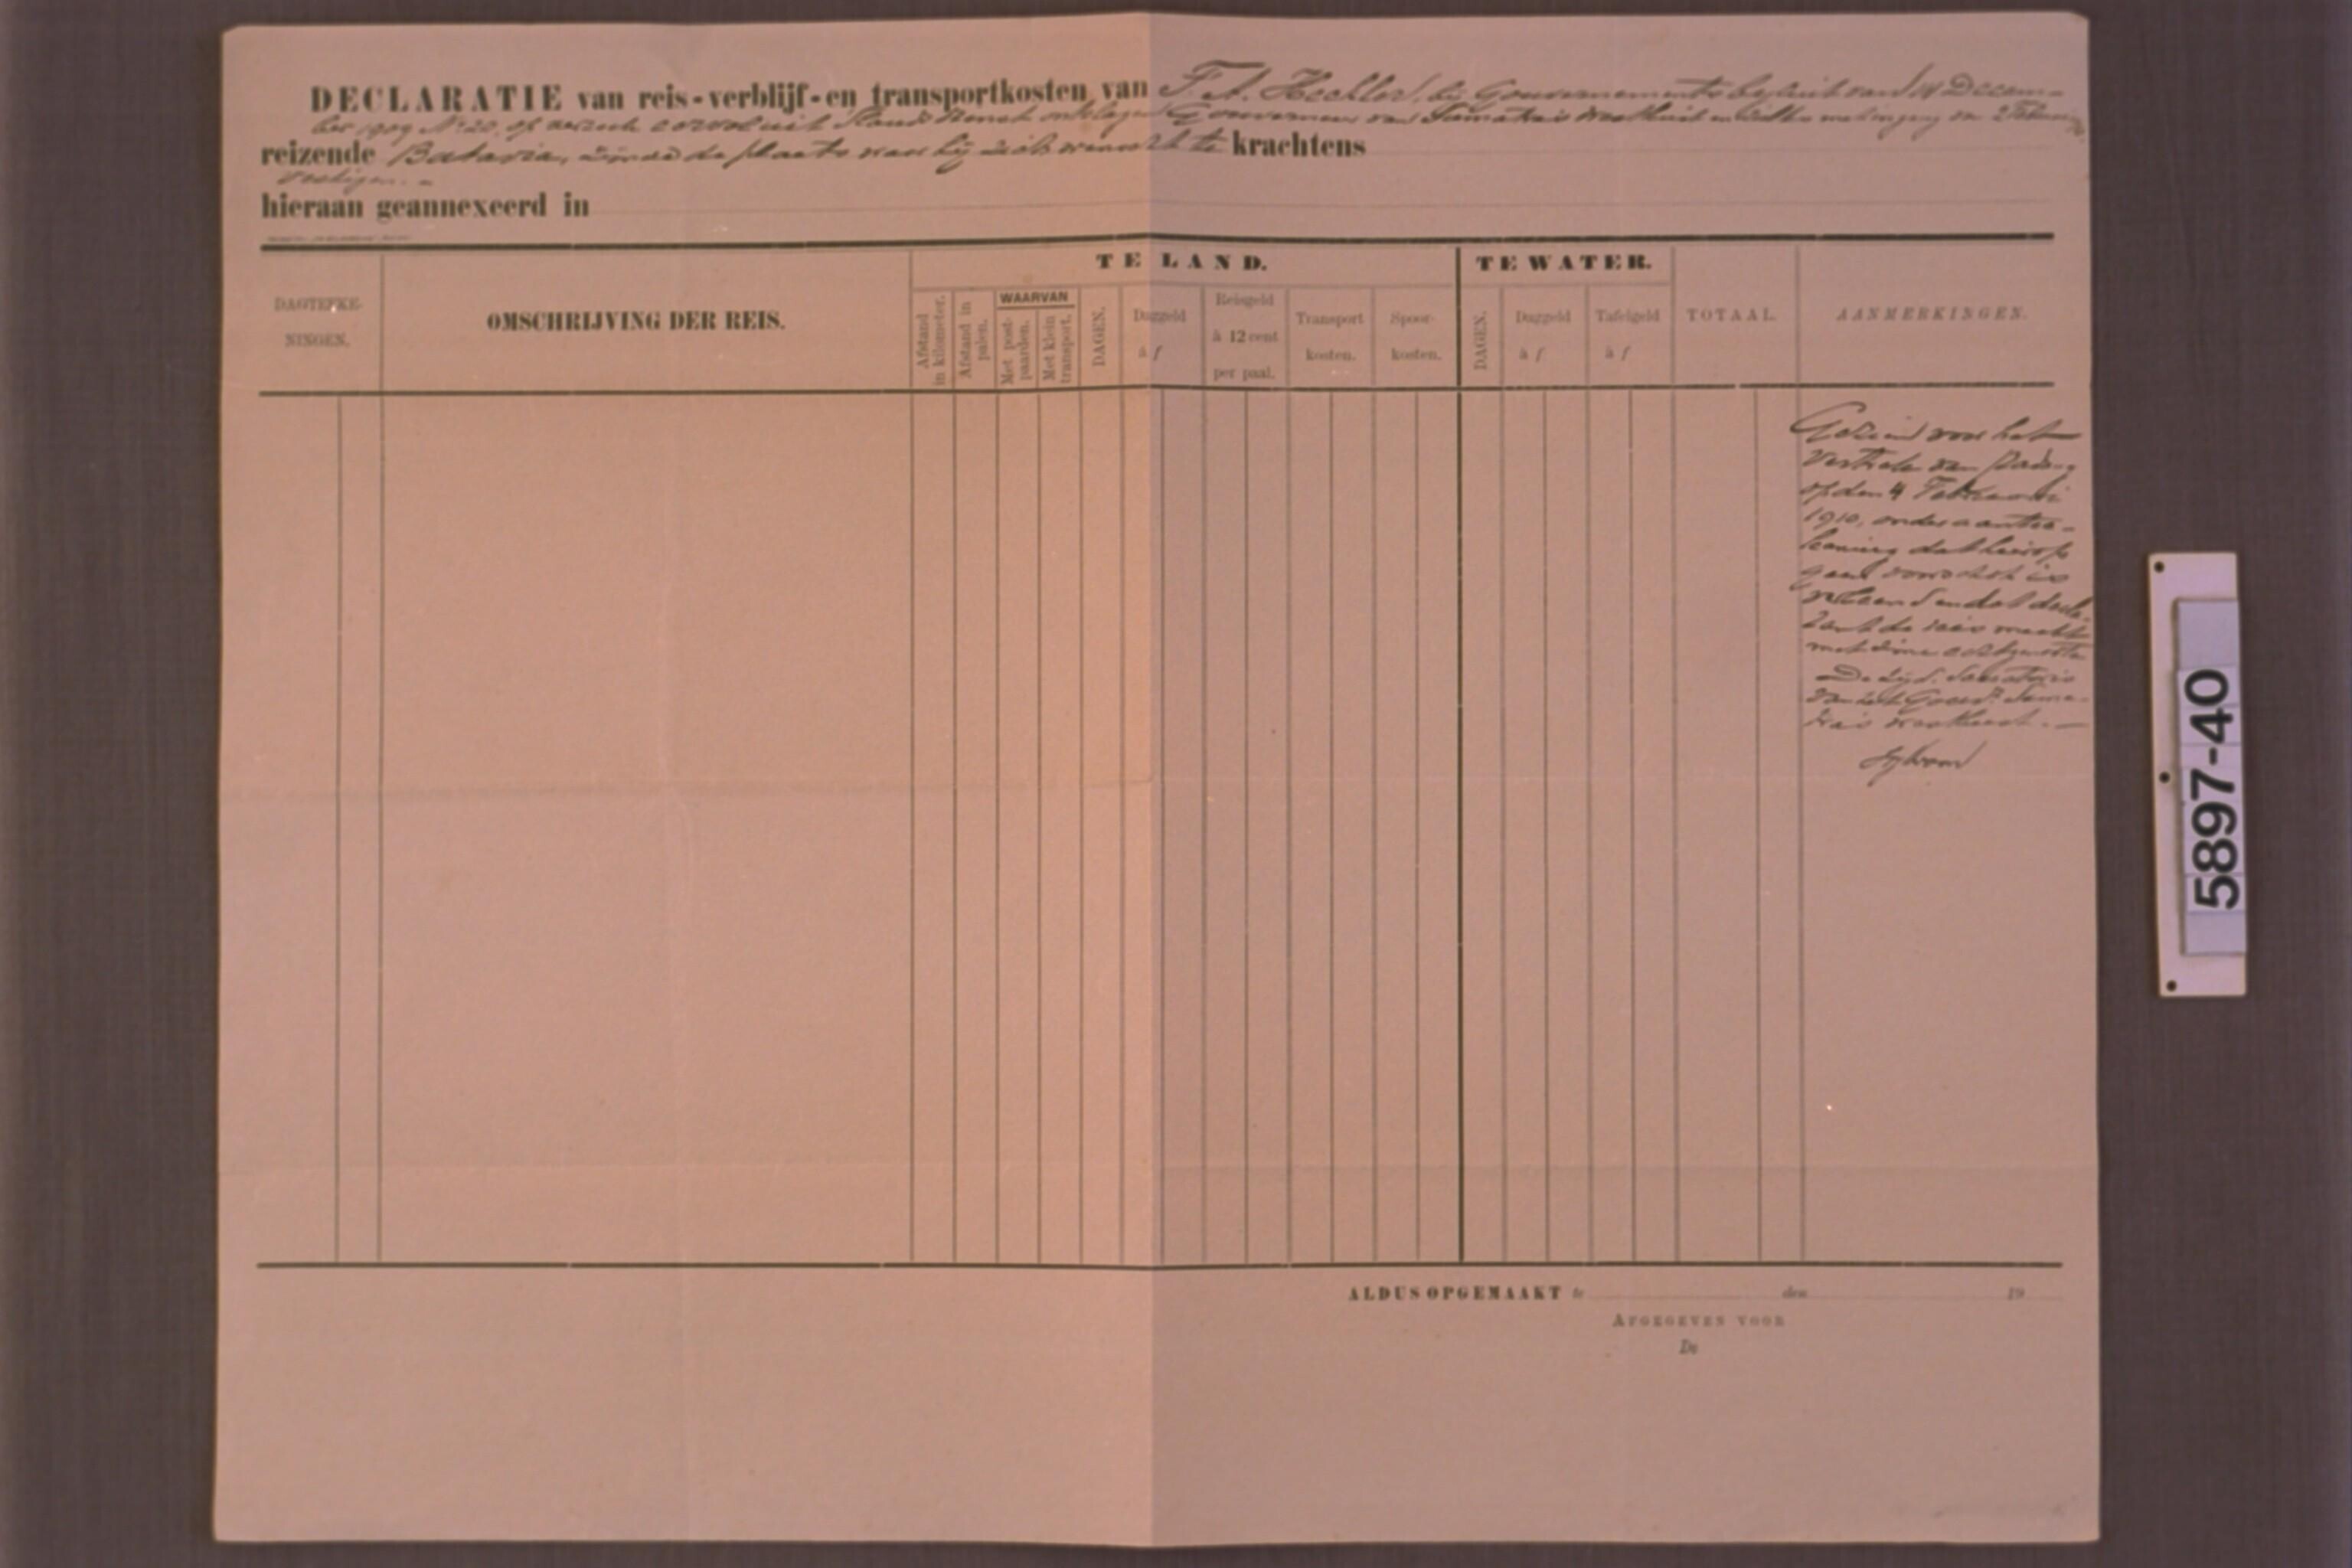 DECLARATIE van reis-verblijf-en transportkosten van F. A. Heckler, bij Gouvernements besluit van 14 Decem-
ber 1909 No 20, op verzoek eervol uit 's Lands dienst ontslagen Gouverneur van Sumatra's Westkust en
reizende Batavia, zijnde de plaats waar hij zich wenscht te krachtens
vestigen.-
hieraan geannexeerd in
DAGTEEKE-
NINGEN.
OMSCHRIJVING DER REIS.
TE LAND.
Afstand in kilometer.
Afstand in palen.
WAARVAN
Met post-paarden.
Met klein transport.
DAGEN.
Daggeld
à f
Reisgeld
à 12 cent
per paal.
Transport
kosten.
Spoor-
kosten.
TE WATER.
DAGEN.
Daggeld
à f
Tafelgeld
à f
TOTAAL.
AANMERKINGEN.
Gezien voor het
vertrek van Padang
op den 4 Februari
1910, onder aantee-
kening dat hierop
geen voorschot is
verleend en dat decla-
rant de reis maakt
met zijne echtgenoote
De Secretaris
van het Gouvt. Suma-
tra's Westkust.-
ALDUS OPGEMAAKT te den 19
AFGEGEVEN VOOR
De
5897-40